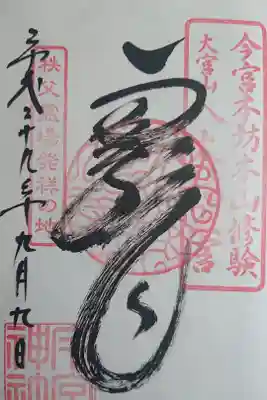 今宮本坊本山修験
大宮山
龍
秩父霊場発祥の地
平成二十九年九月九日